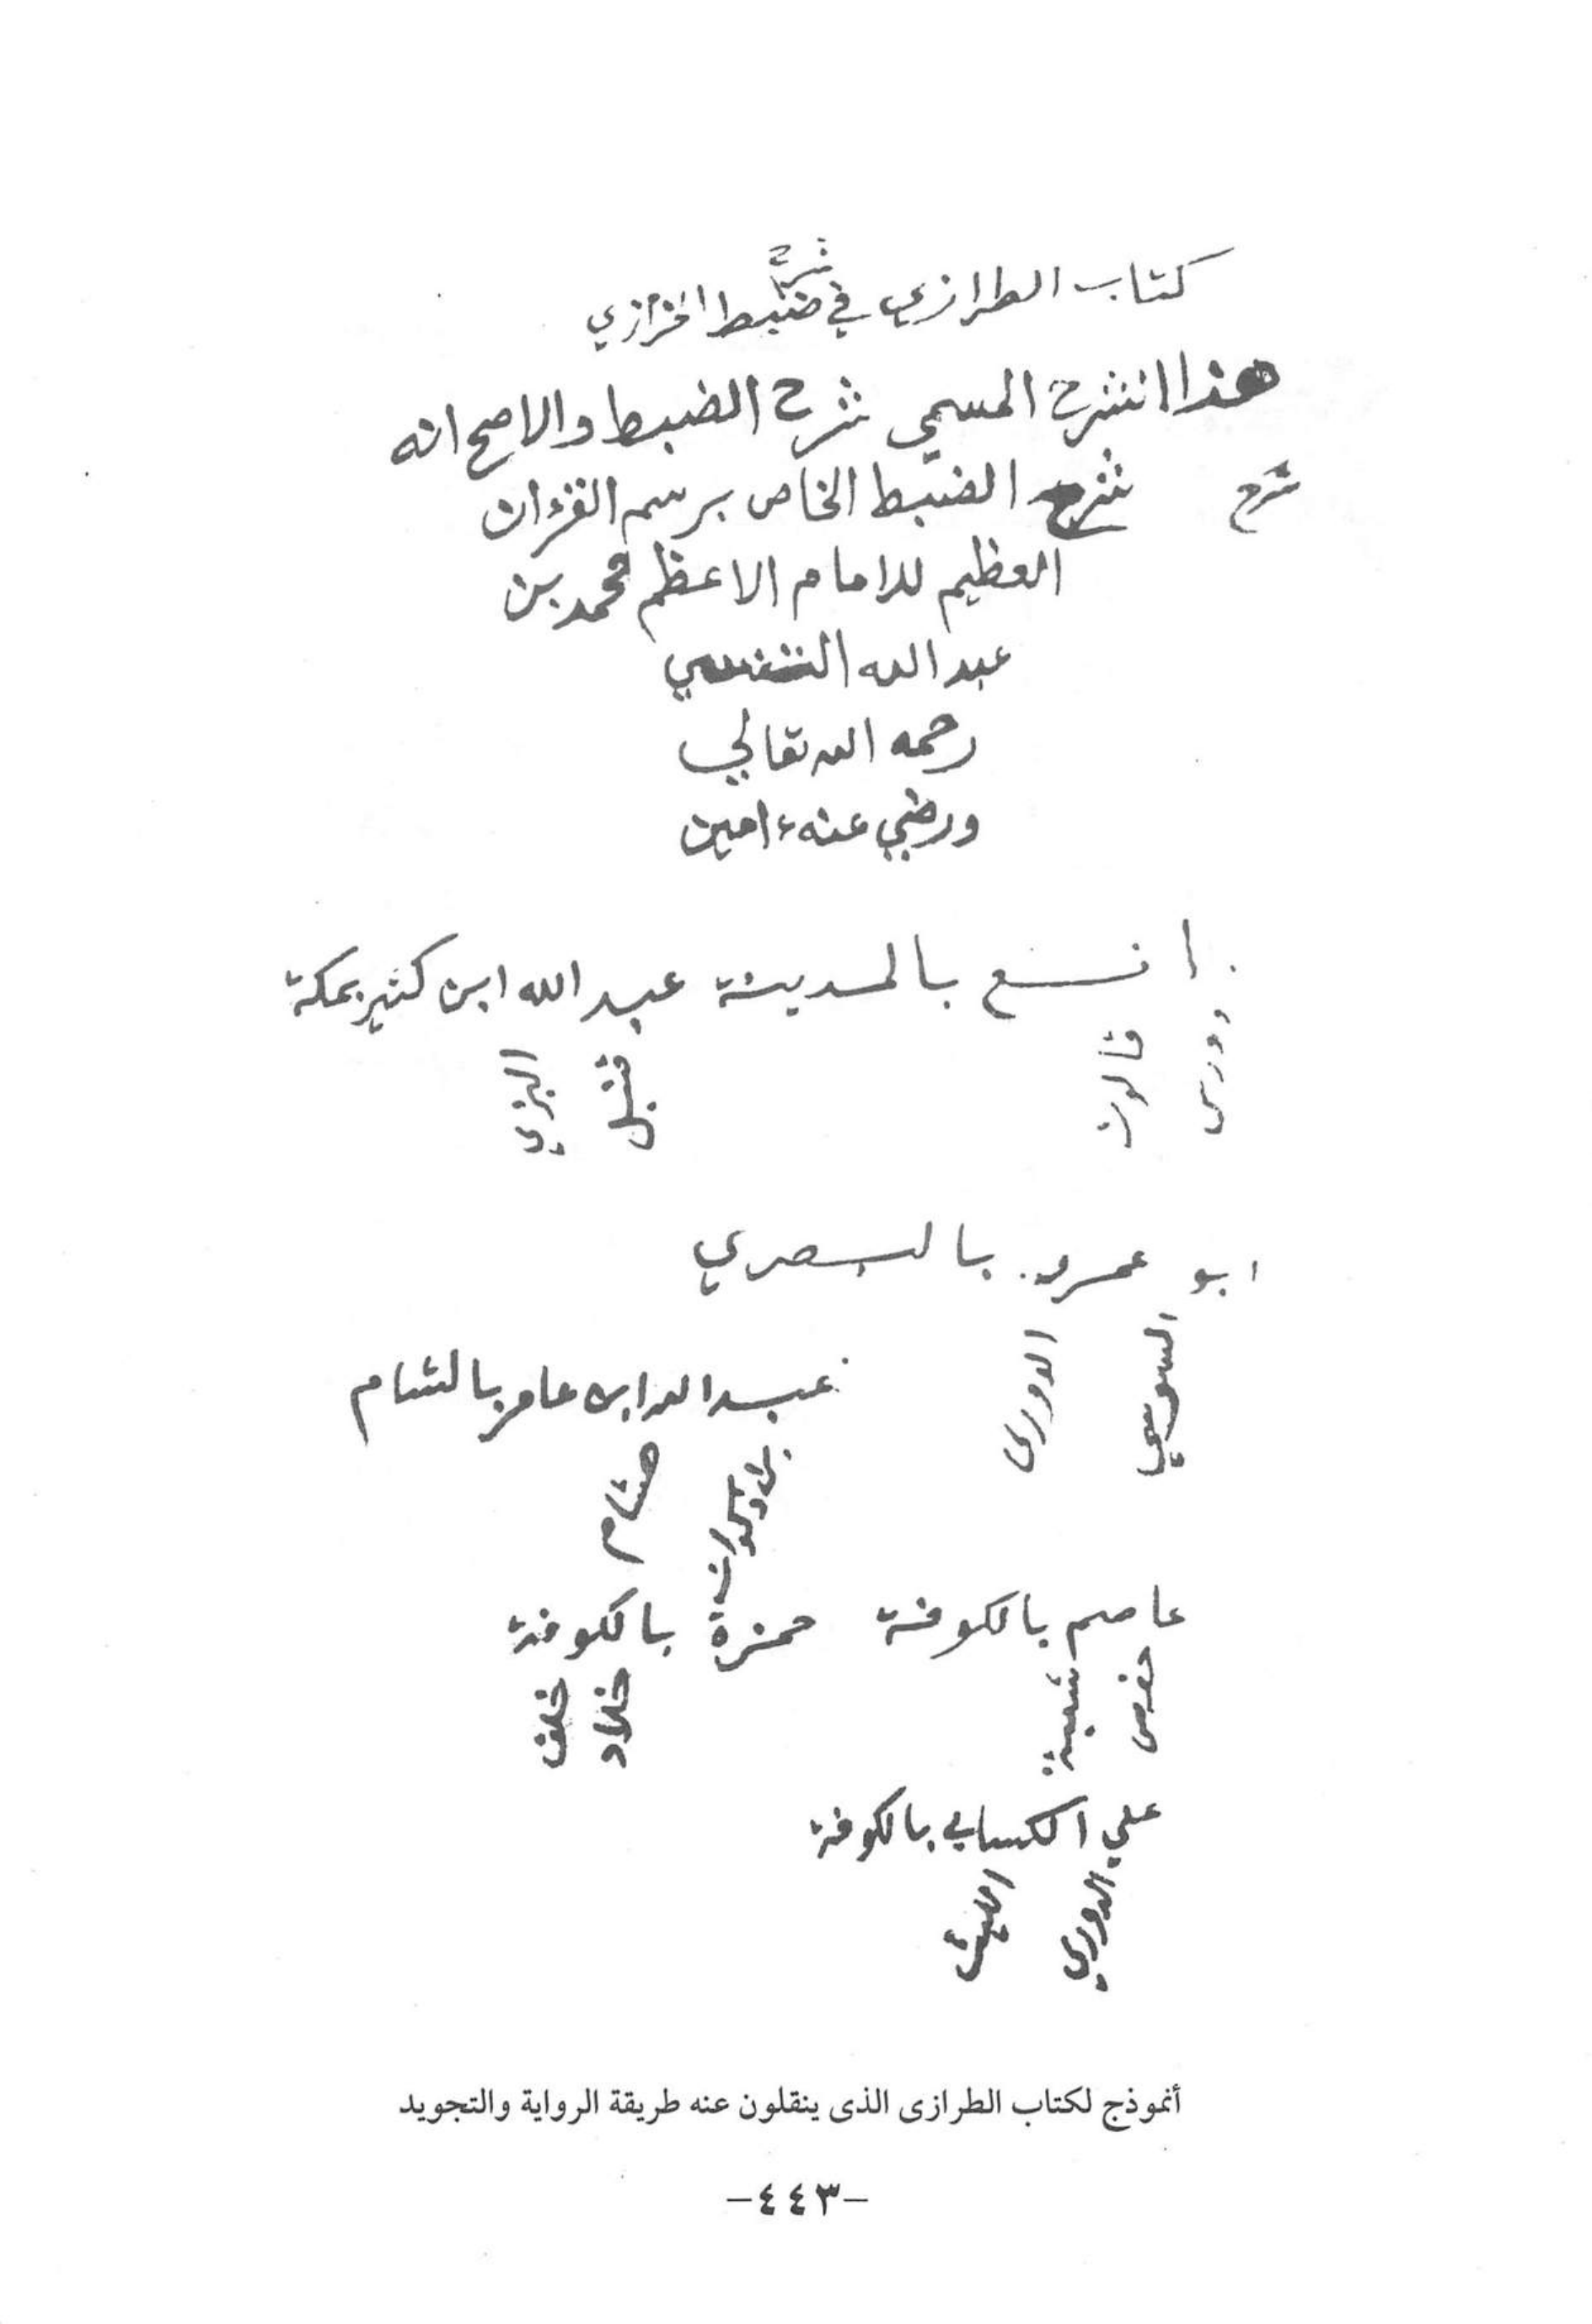 كتاب الطرازي في شرح ضبط الخرازي
هذا الشرح المسمي شرح الضبط والاصح انه
شرح شرح الضبط الخاص برسم القرءان
العظيم للامام الاعظم محمد بن
عبد الله التنسي
رحمه الله تعالي
ورضي عنه ءامين
ا نـــافع بالمدينة عبد الله ابن كثير بمكة
وورس قالون قنبل البزي
ابو عمرو بالبصري
السوسي الدوري
عبد الله ابن عامر بالشام
هشام
عاصم بالكوفة حمزة بالكوفة
حفص شعبة خلاد خلف
علي الكسايي بالكوفة
الدوري الليث
أنموذج لكتاب الطرازى الذى ينقلون عنه طريقة الرواية والتجويد
-٤٤٣-